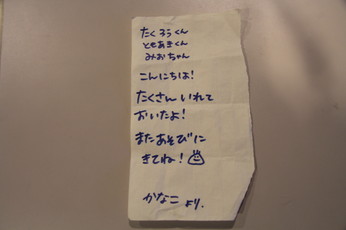 たくろうくん
ともあきくん
みおちゃん
こんにちは!
たくさんいれて
おいたよ!
またあそびに
きてね!
かなこ より.